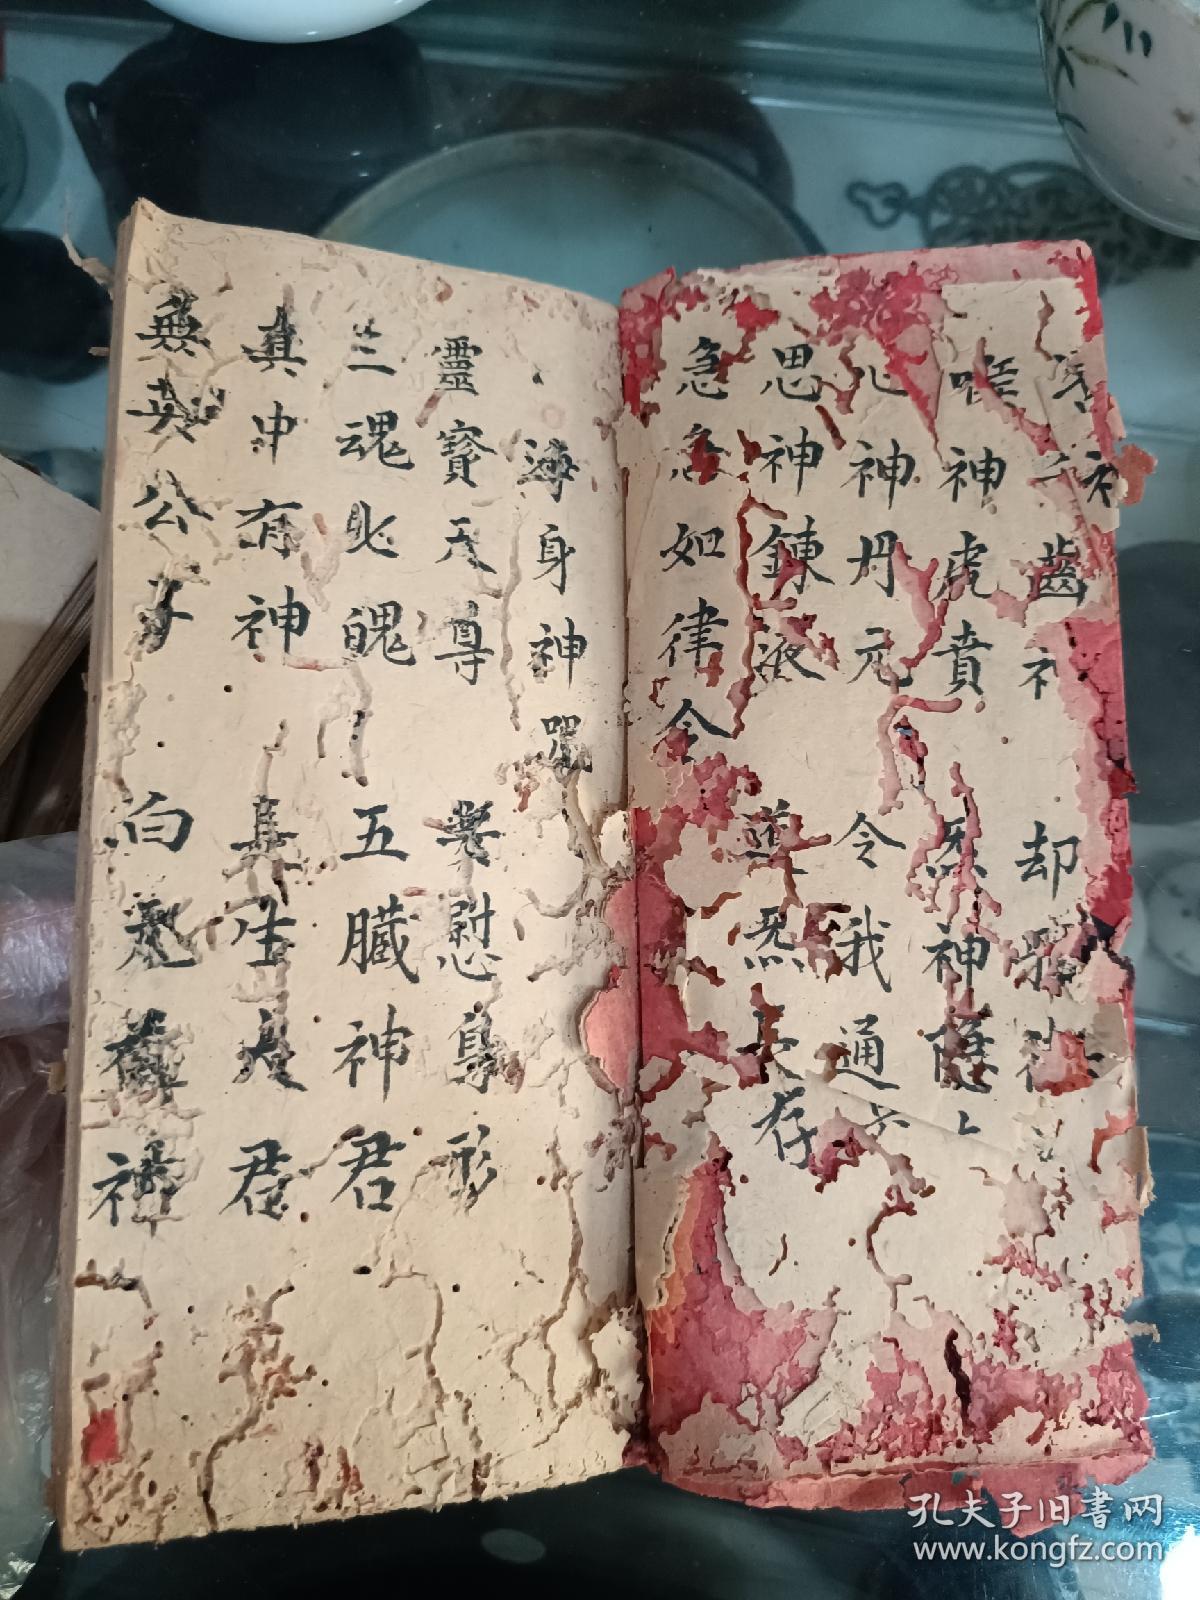 齒神 却邪
喉神虎賁 炁神
心神丹元 令我通
思神鍊液 道炁長存
急急如律令
身神咒
靈寶天尊 安慰身形
三魂七魄 五臟神君
真中有神 真生大君
無英公子 白元 神
孔夫子旧書网
www.kongfz.com